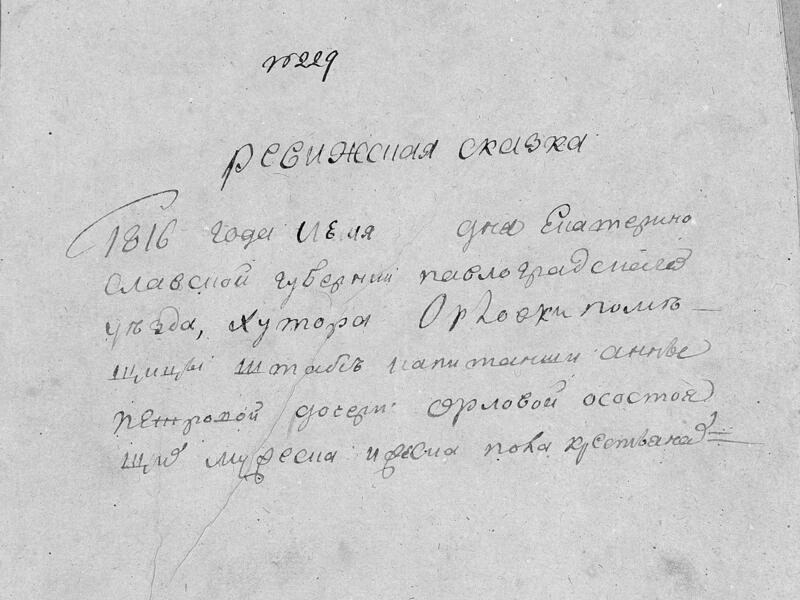 № 229
ревижская сказка
1816 года Июля дня Екатерино
славской губернии павлоградскаго
уѣзда, хутора Орловки помѣ
щицы штабъ капитанши анны
петровой дочери Орловой осостоя
щих мужеска иженска пола крестьянах